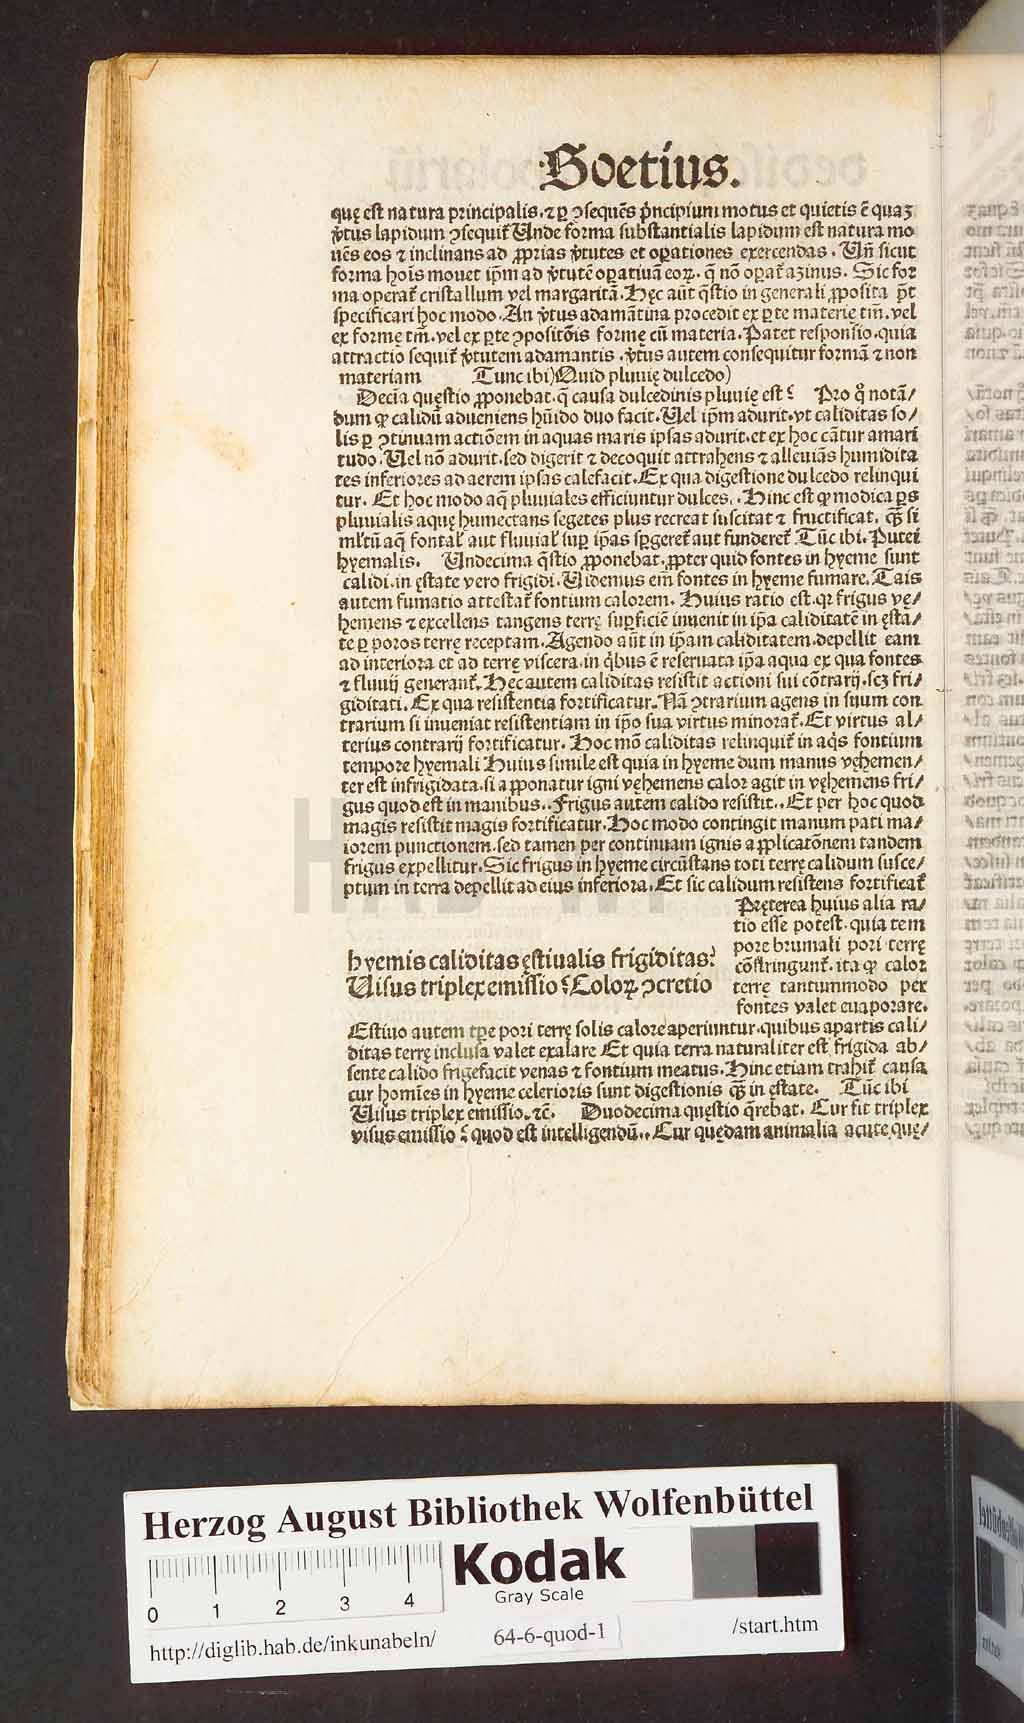 Boetius.
quę est natura principalis. ⁊ ꝑ ↄsequēs p̄ncipium motus et quietis ē quaꝫ
v̄tus lapidum ↄsequit᷑ Unde forma substantialis lapidum est natura mo
uēs eos ⁊ inclinans ad ꝓprias v̄tutes et oꝑationes exercendas. Uñ sicut
forma hoīs mouet ip̄m ad v̄tutē oꝑatiuā eoꝝ. q̄ nō oꝑat᷑ azinus. Sic for
ma operat᷑ cristallum vel margaritā. Hęc aūt q̄stio in generali ꝓposita p̄t
specificari hoc modo. An v̄tus adamātina procedit ex ꝑte materię tm̄. vel
ex formę tm̄. vel ex ꝑte ↄpositōis formę cū materia. Patet responsio. quia
attractio sequit᷑ v̄tutem adamantis. v̄tus autem consequitur formā ⁊ non
materiam Tunc ibi) Quid pluuię dulcedo)
Decīa quęstio ꝓponebat. q̄ causa dulcedinis pluuię est? Pro qͦ notā/
dum ꝙ calidū adueniens hūido duo facit. Uel ip̄m adurit. vt caliditas so/
lis ꝑ ↄtinuam actiōem in aquas maris ipsas adurit. et ex hoc cāt᷑ur amari
tudo. Uel nō adurit. sed digerit ⁊ decoquit attrahens ⁊ alleuiās humidita
tes inferiores ad aerem ipsas calefacit. Ex qua digestione dulcedo relinqui
tur. Et hoc modo aq̄ pluuiales efficiuntur dulces.. Hinc est ꝙ modica ꝑs
pluuialis aquę humectans segetes plus recreat suscitat ⁊ fructificat. q̄ꝫ si
ml̄tū aq̄ fontal᷑ aut fluuial᷑ suꝑ ip̄as sꝑgeret᷑ aut funderet᷑ Tūc ibi. Putei
hyemalis. Undecima q̄stio ꝓponebat. ꝓpter quid fontes in hyeme sunt
calidi. in ęstate vero frigidi. Uidemus em̄ fontes in hyeme fumare. Talis
autem fumatio attestat᷑ fontium calorem. Huius ratio est. qꝛ frigus vę/
hemens ⁊ excellens tangens terrę suꝑficiē inuenit in ip̄a caliditatē in ęsta/
te ꝑ poros terrę receptam. Agendo aūt in ip̄am caliditatem. depellit eam
ad interiora et ad terrę viscera. in qͥbus ē reseruata ip̄a aqua ex qua fontes
⁊ fluuij generant᷑. Hęc autem caliditas resistit actioni sui cōtrarij. scꝫ fri/
giditati. Ex qua resistentia fortificatur. Nā ↄtrarium agens in suum con
trarium si inueniat resistentiam in ip̄o sua virtus minorat᷑. Et virtus al/
terius contrarij fortificatur. Hoc mō caliditas relinquit᷑ in aqͥs fontium
tempore hyemali Huius simile est quia in hyeme dum manus vęhemen/
ter est infrigidata. si apponatur igni vęhemens calor agit in vęhemens fri/
gus quod est in manibus.. Frigus autem calido resistit.. Et per hoc quod
magis resistit magis fortificatur. Hoc modo contingit manum pati ma/
iorem punctionem. sed tamen per continuam ignis applicatōnem tandem
frigus expellitur. Sic frigus in hyeme circūstans toti terrę calidum susce/
ptum in terra depellit ad eius inferiora. Et sic calidum resistens fortificat᷑
Pręterea huius alia ra/
tio esse potest. quia tem
pore brumali pori terrę
cōstringunt᷑. ita ꝙ calor
terrę tantummodo per
fontes valet euaporare.
hyemis caliditas ęstiualis frigiditas?
Uisus triplex emissio? Coloꝝ ↄcretio
Estiuo autem tꝑe pori terrę solis calore aperiuntur. quibus apartis cali/
ditas terrę inclusa valet exalare Et quia terra naturaliter est frigida ab/
sente calido frigefacit venas ⁊ fontium meatus. Hinc etiam trahit᷑ causa
cur homīes in hyeme celerioris sunt digestionis q̄ꝫ in ęstate. Tūc ibi
Uisus triplex emissio. ⁊c̄. Duodecima quęstio q̄rebat. Cur fit triplex
visus emissio? quod est intelligendū.. Cur quędam animalia acute. quę/
HAB WF
Herzog August Bibliothek Wolfenbüttel
0 1 2 3 4
Kodak
Gray Scale
http://diglib.hab.de/inkunabeln/ 64-6-quod-1 /start.htm